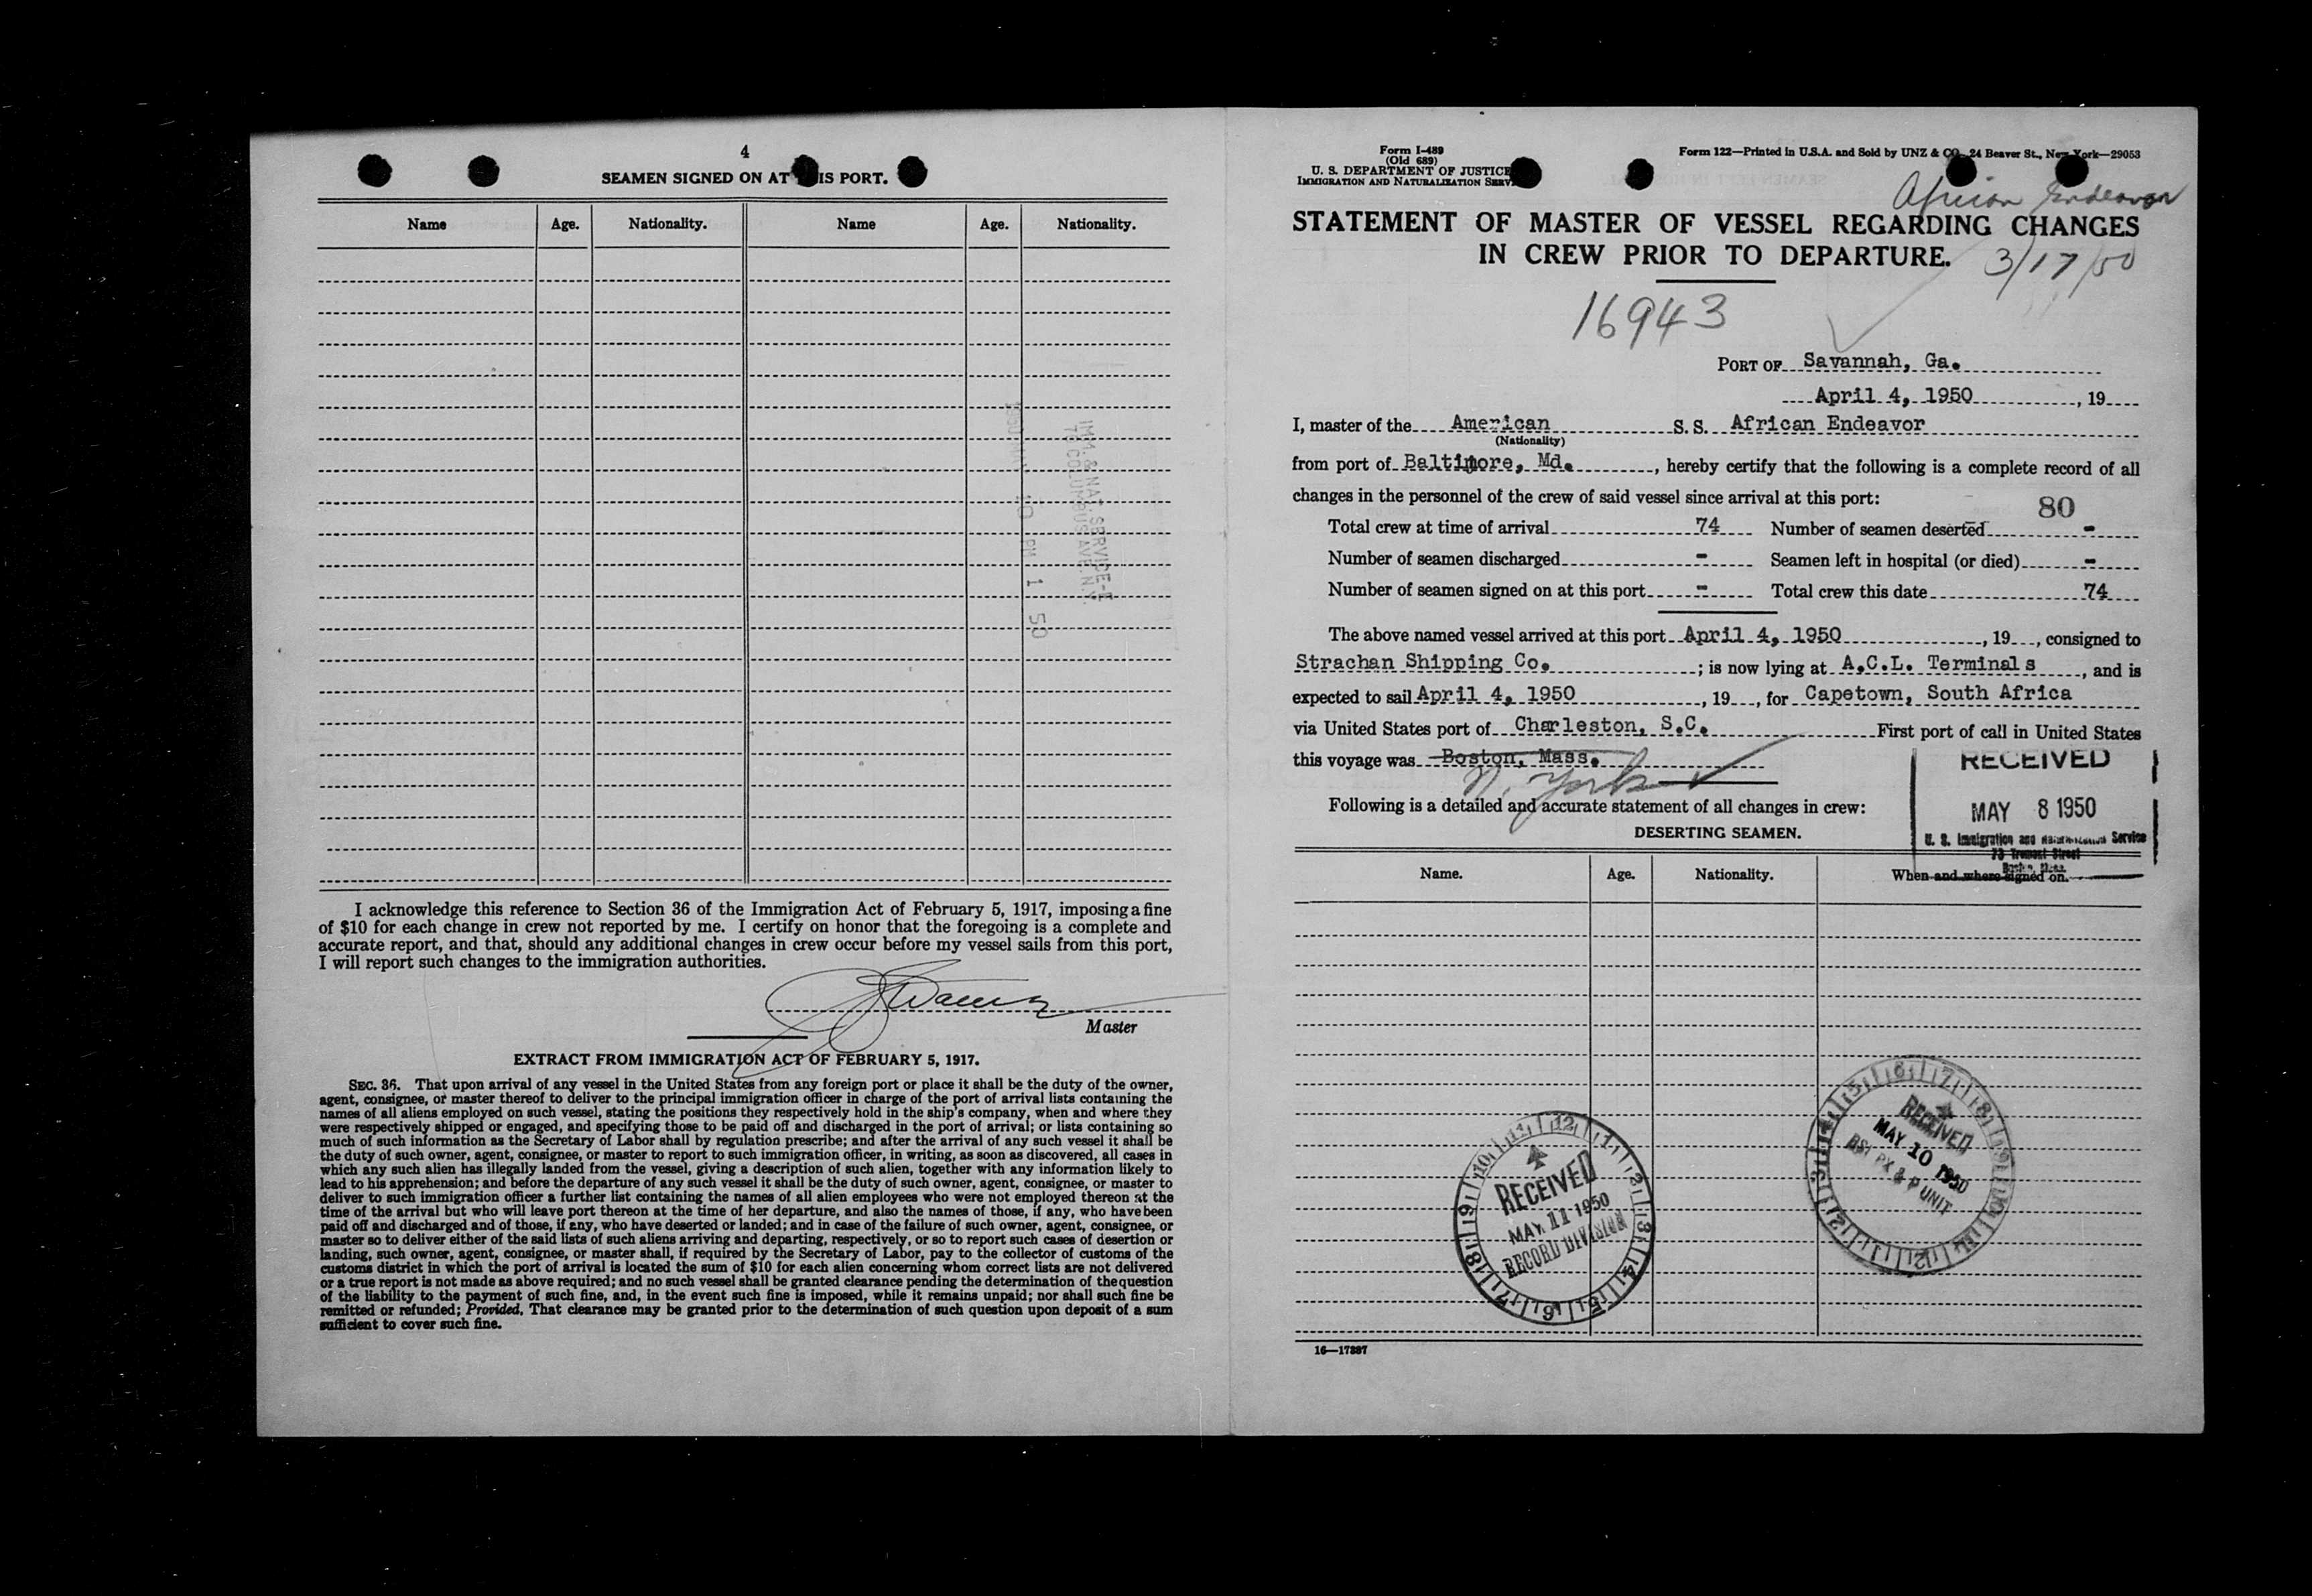 4
SEAMEN SIGNED ON AT THIS PORT.
Name Age. Nationality. Name Age. Nationality.
IMM. & NAT. SERVICE-E
70 COLUMBUS AVE. N.Y.
10 PM 1 50
I acknowledge this reference to Section 36 of the Immigration Act of February 5, 1917, imposing a fine
of $10 for each change in crew not reported by me. I certify on honor that the foregoing is a complete and
accurate report, and that, should any additional changes in crew occur before my vessel sails from this port,
I will report such changes to the immigration authorities.
Master
EXTRACT FROM IMMIGRATION ACT OF FEBRUARY 5, 1917.
SEC. 36. That upon arrival of any vessel in the United States from any foreign port or place it shall be the duty of the owner,
agent, consignee, or master thereof to deliver to the principal immigration officer in charge of the port of arrival lists containing the
names of all aliens employed on such vessel, stating the positions they respectively hold in the ship's company, when and where they
were respectively shipped or engaged, and specifying those to be paid off and discharged in the port of arrival; or lists containing so
much of such information as the Secretary of Labor shall by regulation prescribe; and after the arrival of any such vessel it shall be
the duty of such owner, agent, consignee, or master to report to such immigration officer, in writing, as soon as discovered, all cases in
which any such alien has illegally landed from the vessel, giving a description of such alien, together with any information likely to
lead to his apprehension; and before the departure of any such vessel it shall be the duty of such owner, agent, consignee, or master to
deliver to such immigration officer a further list containing the names of all alien employees who were not employed thereon at the
time of the arrival but who will leave port thereon at the time of her departure, and also the names of those, if any, who have been
paid off and discharged and of those, if any, who have deserted or landed; and in case of the failure of such owner, agent, consignee, or
master so to deliver either of the said lists of such aliens arriving and departing, respectively, or so to report such cases of desertion or
landing, such owner, agent, consignee, or master shall, if required by the Secretary of Labor, pay to the collector of customs of the
customs district in which the port of arrival is located the sum of $10 for each alien concerning whom correct lists are not delivered
or a true report is not made as above required; and no such vessel shall be granted clearance pending the determination of the question
of the liability to the payment of such fine, and, in the event such fine is imposed, while it remains unpaid; nor shall such fine be
remitted or refunded; Provided, That clearance may be granted prior to the determination of such question upon deposit of a sum
sufficient to cover such fine.
Form I-489
(Old 689)
U. S. DEPARTMENT OF JUSTICE
IMMIGRATION AND NATURALIZATION SERV
Form 122—Printed in U.S.A. and Sold by UNZ & CO. 24 Beaver St., New York—29053
African Endeavor
STATEMENT OF MASTER OF VESSEL REGARDING CHANGES
IN CREW PRIOR TO DEPARTURE.
3/17/50
16943
PORT OF Savannah, Ga.
April 4, 1950, 19
I, master of the American S. S. African Endeavor
(Nationality)
from port of Baltimore, Md., hereby certify that the following is a complete record of all
changes in the personnel of the crew of said vessel since arrival at this port:
80
Total crew at time of arrival 74 Number of seamen deserted -
Number of seamen discharged - Seamen left in hospital (or died) -
Number of seamen signed on at this port - Total crew this date 74
The above named vessel arrived at this port April 4, 1950, 19, consigned to
Strachan Shipping Co. ; is now lying at A.C.L. Terminals, and is
expected to sail April 4, 1950, 19, for Capetown, South Africa
via United States port of Charleston, S.C. First port of call in United States
this voyage was Boston, Mass.
N. York
RECEIVED
MAY 8 1950
U. S. Immigration and Naturalization Service
73 Tremont Street
Boston, Mass.
Following is a detailed and accurate statement of all changes in crew:
DESERTING SEAMEN.
Name. Age. Nationality. When and where signed on.
RECEIVED
MAY 10 1950
UNIT
RECEIVED
MAY 11 1950
RECORD DIVISION
16—17887